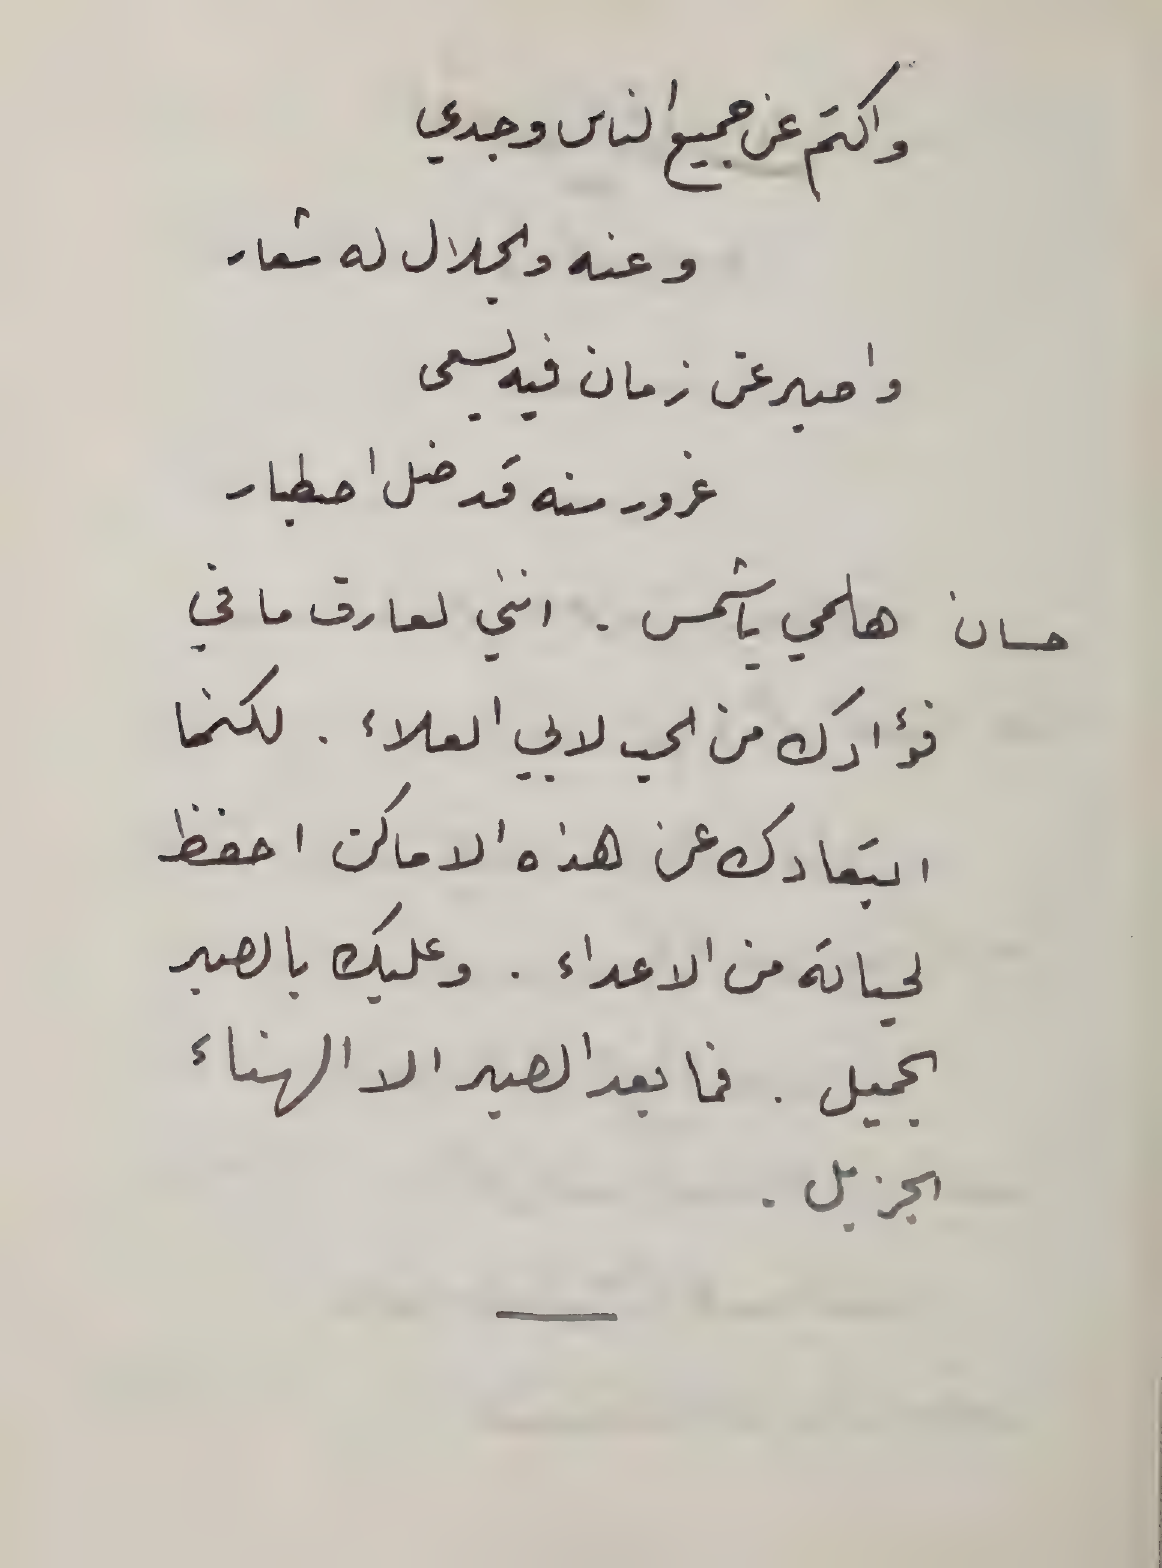 واكتم عن جميع الناس وجدي
وعنه والجلال له شعار
واصبر عن زمان فيه يسعى
غرور منه قد ضل اصطبار
حسان هلمي يا شمس . انني لعارف ما في
فؤادك من الحب لابي العلاء . لكنما
ابتعادك عن هذه الاماكن احفظ
لحياته من الاعداء . وعليك بالصبر
الجميل . فما بعد الصبر الا الهناء
الجزيل .